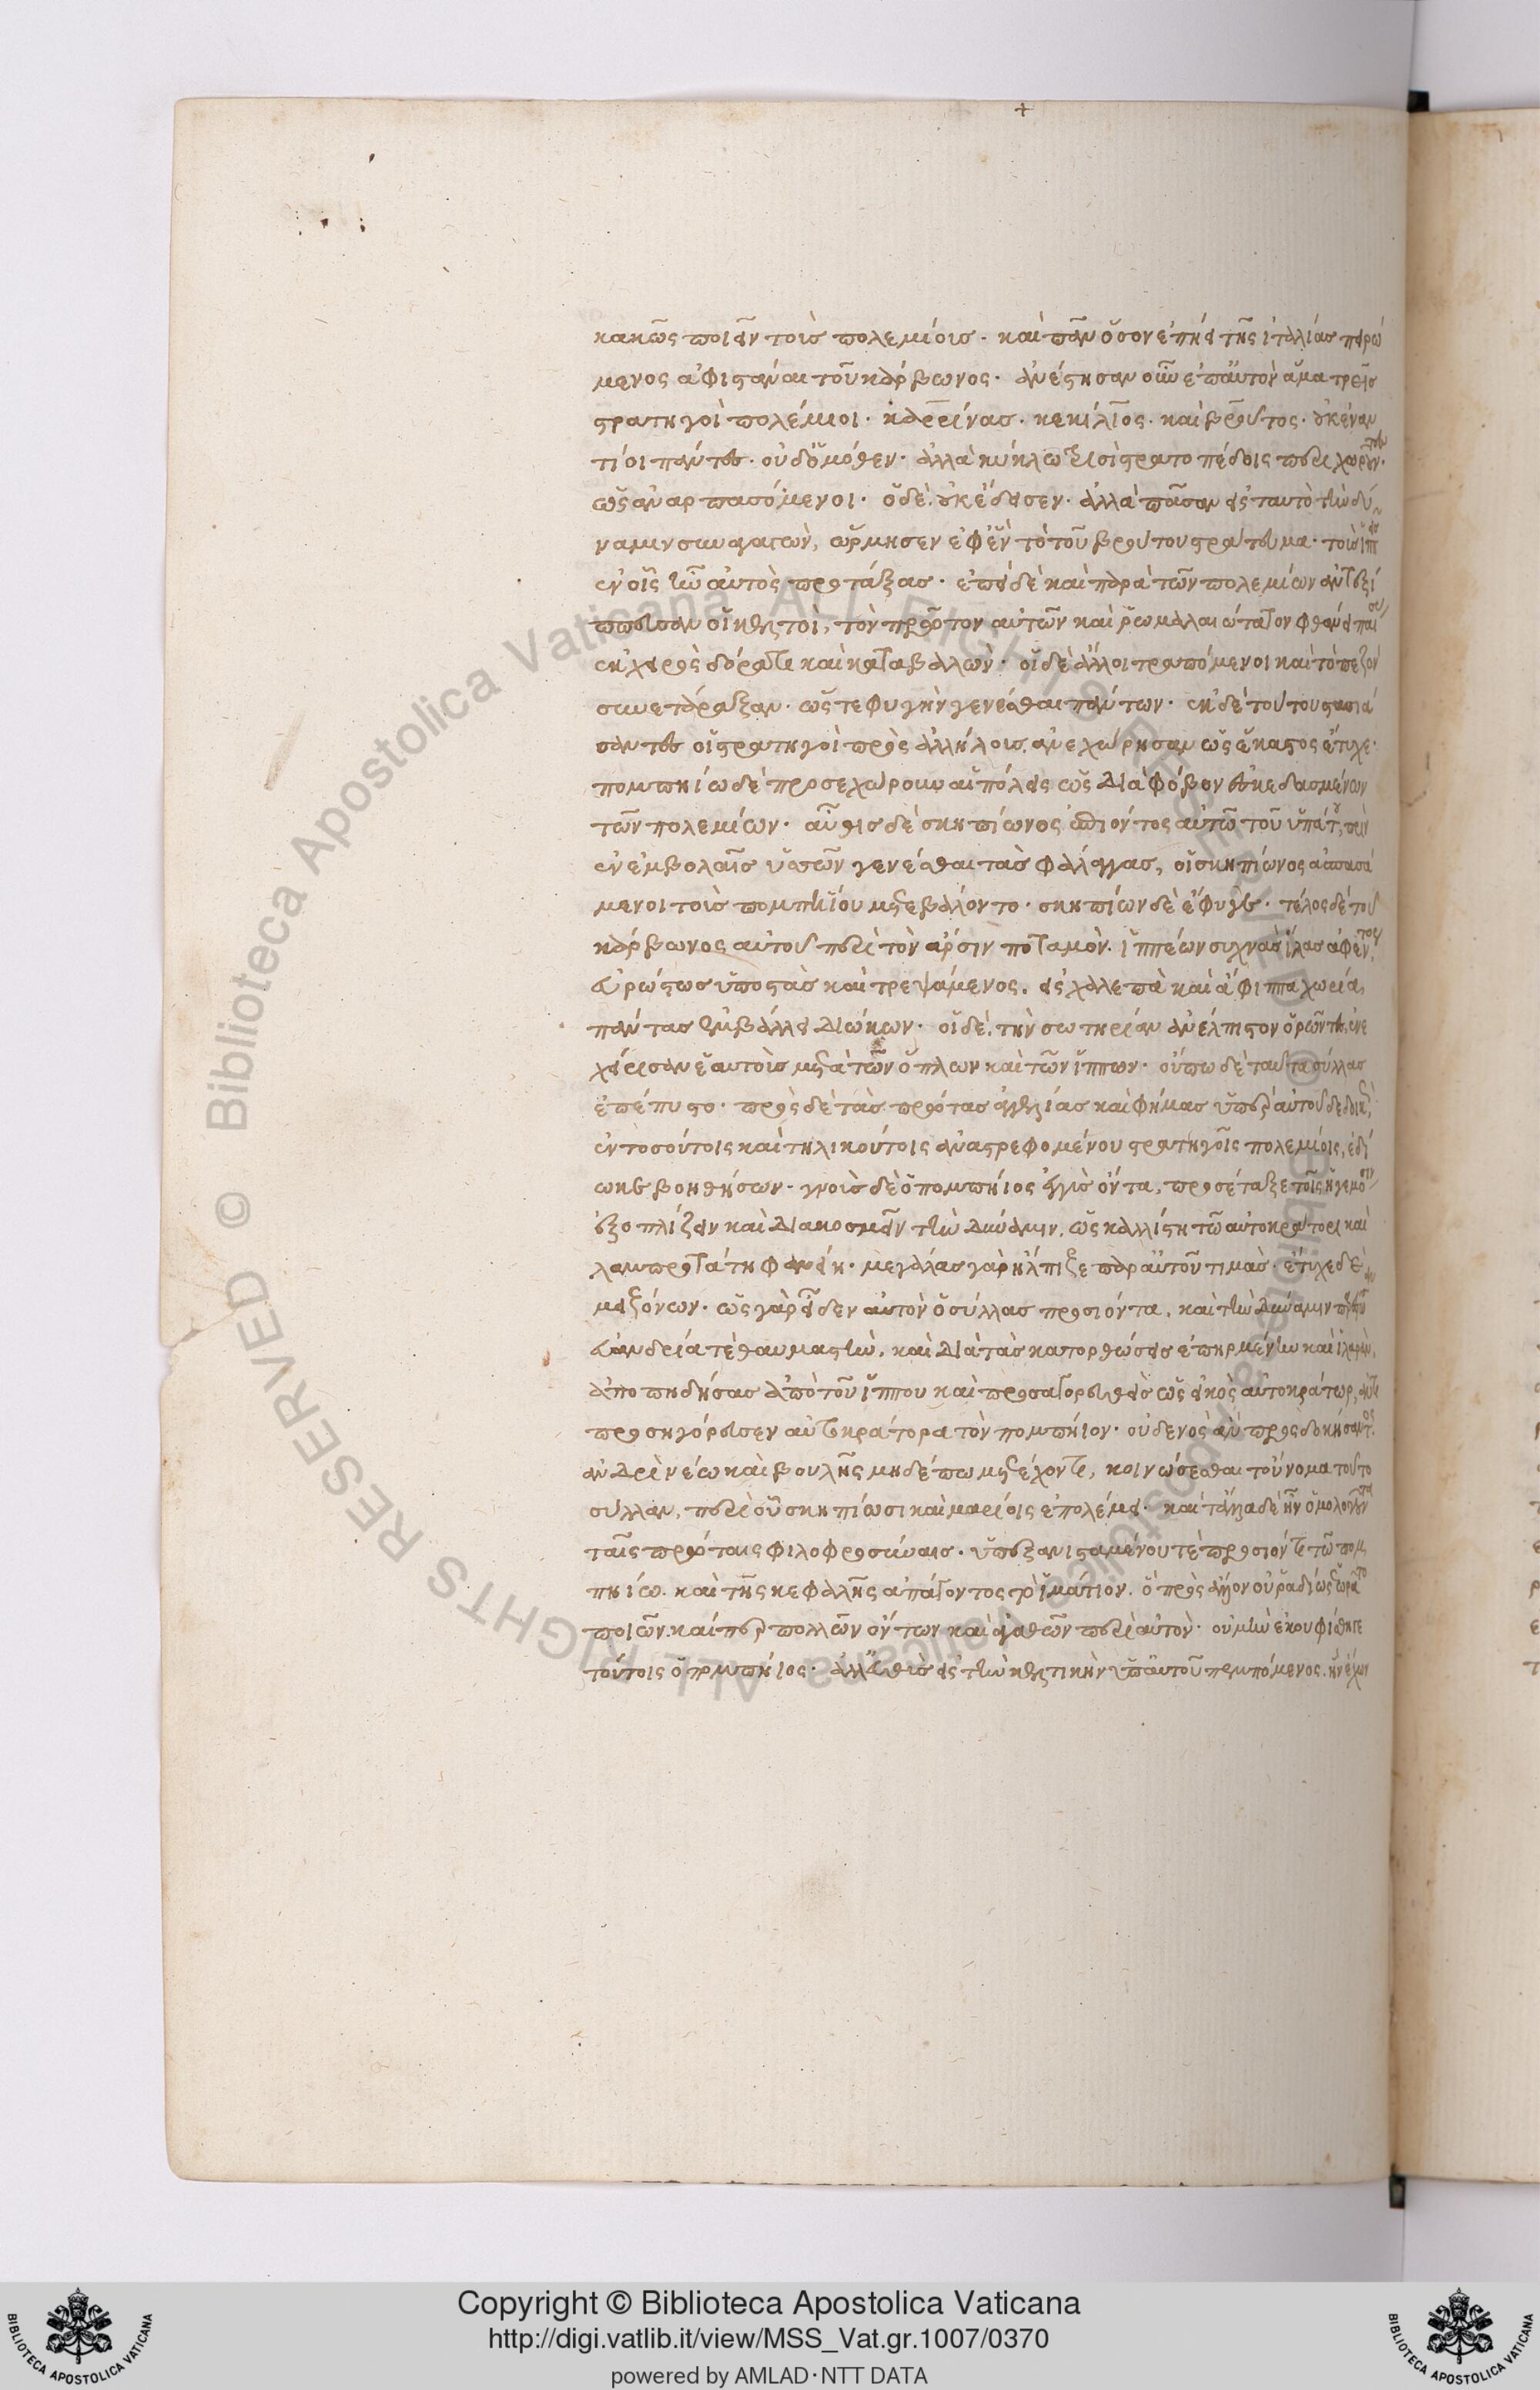 κακῶς ποιεῖν τοῖς πολεμίοις· καὶ πᾶν ὅσον ἐπήει τῆς ἰταλίας πειρώ
μενος ἀφιστάναι τοῦ κάρβωνος· ἀνέστησαν οὖν ἐπ' αὐτὸν ἅμα τρεῖς
στρατηγοὶ πολέμιοι· καρρίνας· κεκίλιος· καὶ βροῦτος· οὐκ ἐναν
τίοι πάντες· οὐδ' ὁμόθεν· ἀλλὰ κύκλω τρισὶ στρατοπέδοις περιχωροῦντες·
ὡς ἀναρπασόμενοι· ὁ δὲ οὐκ ἔδεισεν· ἀλλὰ πᾶσαν εἰς ταυτὸ τὴν δύ
ναμιν συναγαγὼν, ὥρμησεν ἐφ' ἓν τὸ τοῦ βρούτου στράτευμα· τοὺς ἱππεῖς
ἐν οἷς ἦν αὐτὸς προτάξας· ἐπεὶ δὲ καὶ παρὰ τῶν πολεμίων ἀντεξί
ππευσαν οἱ κελτοὶ, τὸν πρῶτον αὐτῶν καὶ ῥωμαλαιώτατον φθάνει παίσας
ἐκ χειρὸς δόρατι καὶ καταβαλών· οἱ δὲ ἄλλοι τραπόμενοι καὶ τὸ πεζὸν
συνετάραξαν· ὥστε φυγὴν γενέσθαι πάντων· ἐκ δὲ τούτου στασιά
σαντες οἱ στρατηγοὶ πρὸς ἀλλήλους, ἀνεχώρησαν ὡς ἕκαστος ἔτυχε·
πομπηίω δὲ προσεχώρουν αἱ πόλεις ὡς διὰ φόβον ἐσκεδασμένων
τῶν πολεμίων· αὖθις δὲ σκηπίωνος ἐπιόντος αὐτῶ τοῦ ὑπάτου, πρὶν
ἐν ἐμβολαῖς ὑσσῶν γενέσθαι τὰς φάλαγγας, οἱ σκηπίωνος ἀσπασά
μενοι τοὺς πομπηίου μετεβάλοντο· σκηπίων δὲ ἔφυγεν· τέλος δὲ τοῦ
κάρβωνος αὐτοῦ περὶ τὸν ἄρσιν ποταμὸν· ἱππέων συχνὰς ἴλας ἀφέντος,
εὐρώστως ὑποστὰς καὶ τρεψάμενος, εἰς χαλεπὰ καὶ ἄφιππα χωρία,
πάντας ἐμβάλλει διώκων· οἱ δὲ τὴν σωτηρίαν ἀνέλπιστον ὁρῶντες, ἐνε
χείρισαν ἑαυτοὺς μετὰ τῶν ὅπλων καὶ τῶν ἵππων· οὔπω δὲ ταῦτα σύλλας
ἐπέπυστο· πρὸς δὲ τὰς πρώτας ἀγγελίας καὶ φήμας ὑπὲρ αὐτοῦ δεδοικὼς,
ἐν τοσούτοις καὶ τηλικούτοις ἀναστρεφομένου στρατηγοῖς πολεμίοις, ἐδί
ωκε βοηθήσων· γνοὺς δὲ ὁ πομπήιος ἐγγὺς ὄντα, προσέταξε τοῖς ἡγεμόσιν
ἐξοπλίζειν καὶ διακοσμεῖν τὴν δύναμιν, ὡς καλλίστη τῶ αὐτοκράτορι καὶ
λαμπροτάτη φανείη· μεγάλας γὰρ ἤλπιζε παρ' αὐτοῦ τιμὰς· ἔτυχε δὲ
μειζόνων· ὡς γὰρ εἶδεν αὐτὸν ὁ σύλλας προσιόντα, καὶ τὴν δύναμιν παρεστῶσαν
εὐανδρία τὲ θαυμαστὴν, καὶ διὰ τὰς κατορθώσεις ἐπηρμένην καὶ ἱλαρὰν,
ἀποπηδήσας ἀπὸ τοῦ ἵππου καὶ προσαγορευθεὶς ὡς εἰκὸς αὐτοκράτωρ, ἀντι
προσηγόρευσεν αὐτοκράτορα τὸν πομπήιον· οὐδενὸς ἂν προσδοκήσαντος
ἀνδρὶ νέω καὶ βουλῆς μηδέπω μετέχοντι, κοινώσεσθαι τοὔνομα τοῦτο
σύλλαν, περὶ οὗ σκηπίωσι καὶ μαρίοις ἐπολέμει· καὶ τἆλλα δὲ ἦν ὁμολογοῦντα
ταῖς πρώταις φιλοφροσύναις· ὑπεξανισταμένου τὲ προσιόντι τῶ πομ
πηίω· καὶ τῆς κεφαλῆς ἀπάγοντος τὸ ἱμάτιον· ὃ πρὸς ἄλλον οὐ ῥαδίως ἑωρᾶτο
ποιῶν· καίπερ πολλῶν ὄντων καὶ ἀγαθῶν περὶ αὐτὸν· οὐ μὴν ἐκουφίσθη γε
τούτοις ὁ πομπήιος· ἀλλ' εὐθὺς εἰς τὴν κελτικὴν ὑπ' αὐτοῦ πεμπόμενος, ἣν ἔχων
Copyright © Biblioteca Apostolica Vaticana
http://digi.vatlib.it/view/MSS_Vat.gr.1007/0370
powered by AMLAD·NTT DATA
BIBLIOTECA APOSTOLICA VATICANA
BIBLIOTECA APOSTOLICA VATICANA
© Biblioteca Apostolica Vaticana ALL RIGHTS RESERVED
© Biblioteca Apostolica Vaticana ALL RIGHTS RESERVED